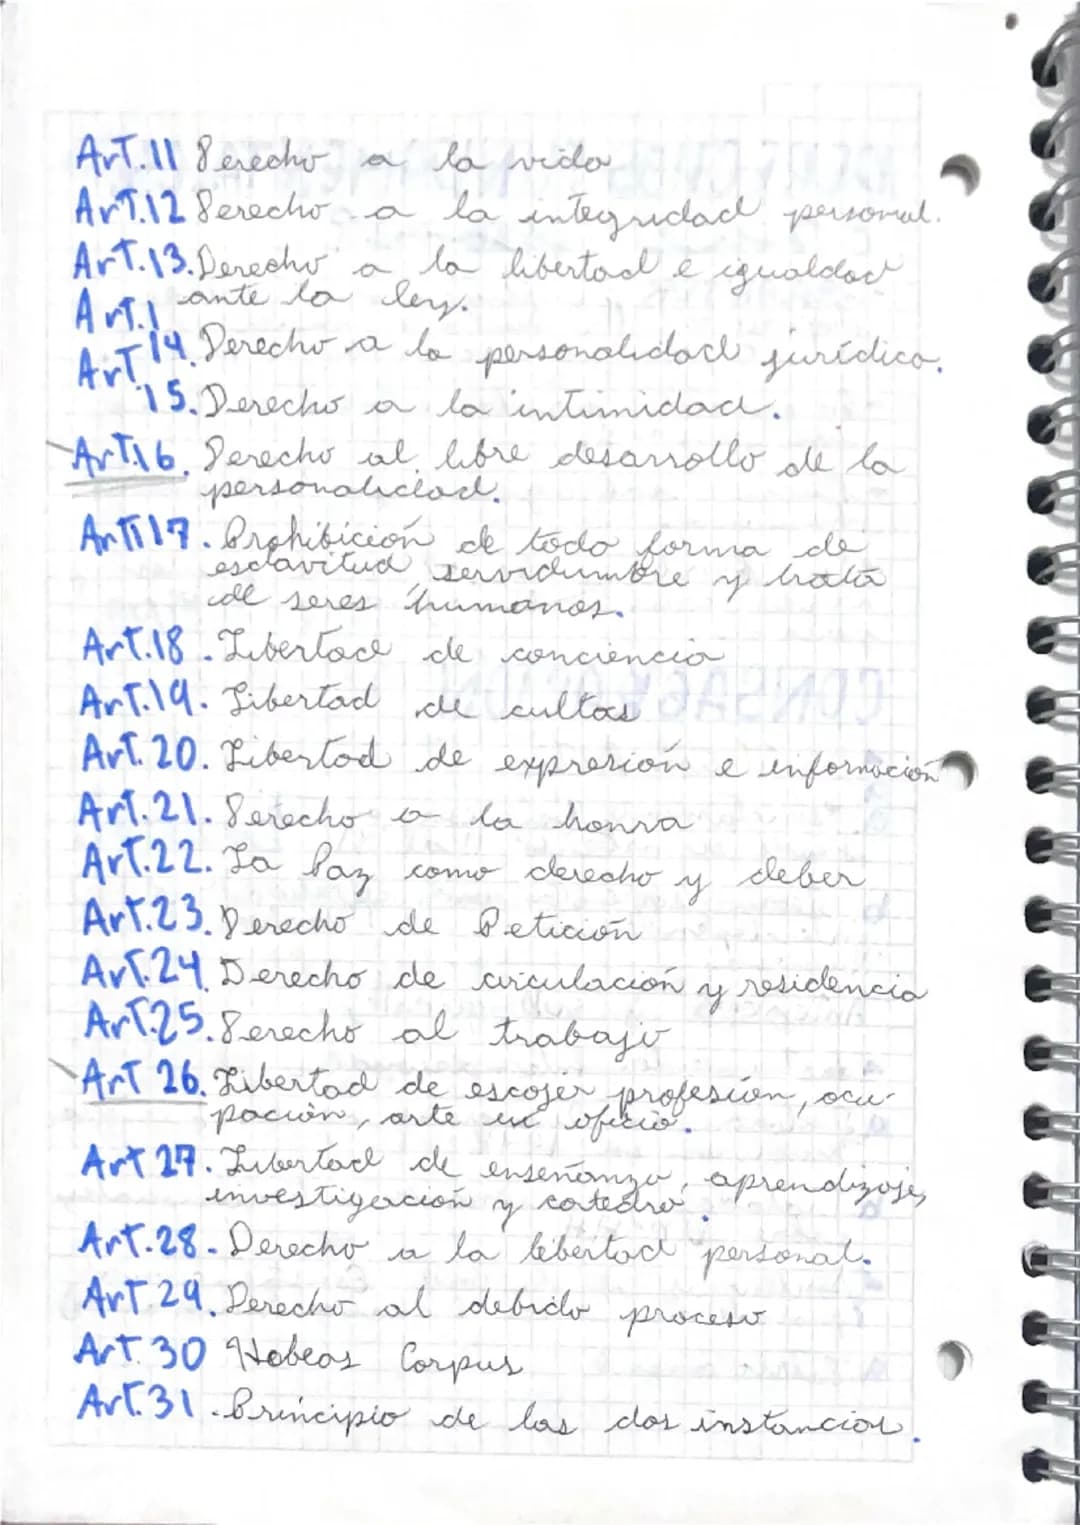 ArT.11 Derecho a la vida
ArT.12 Derecho a la integridad personal.
ArT.13. Derecho a la libertad e igualdad
ante la ley.
ArT.1
ArT 14. Derecho a la personalidad jurídica.
15. Derecho a la intimidad.
ArT.16. Derecho al libre desarrollo de la
personalidad.
ArT.17. Prohibición de toda forma de
esclavitud, servidumbre y trata
de seres humanos.
ArT.18. Libertad de conciencia
ArT.19. Libertad de cultos
ArT. 20. Libertad de expresión e información
ArT. 21. Derecho a la honra
ArT.22. La Paz como derecho y deber
ArT.23. Derecho de Petición
ArT.24. Derecho de circulación y residencia
ArT.25. Derecho al trabajo
ArT 26. Libertad de escojer profesión, ocu-
pación, arte u oficio.
ArT 27. Libertad de enseñanza, aprendizaje,
investigación y catedra.
ArT.28. Derecho a la libertad personal.
ArT 29. Derecho al debido proceso
ArT. 30 Habeas Corpus
ArT.31. Principio de las dos instancias.